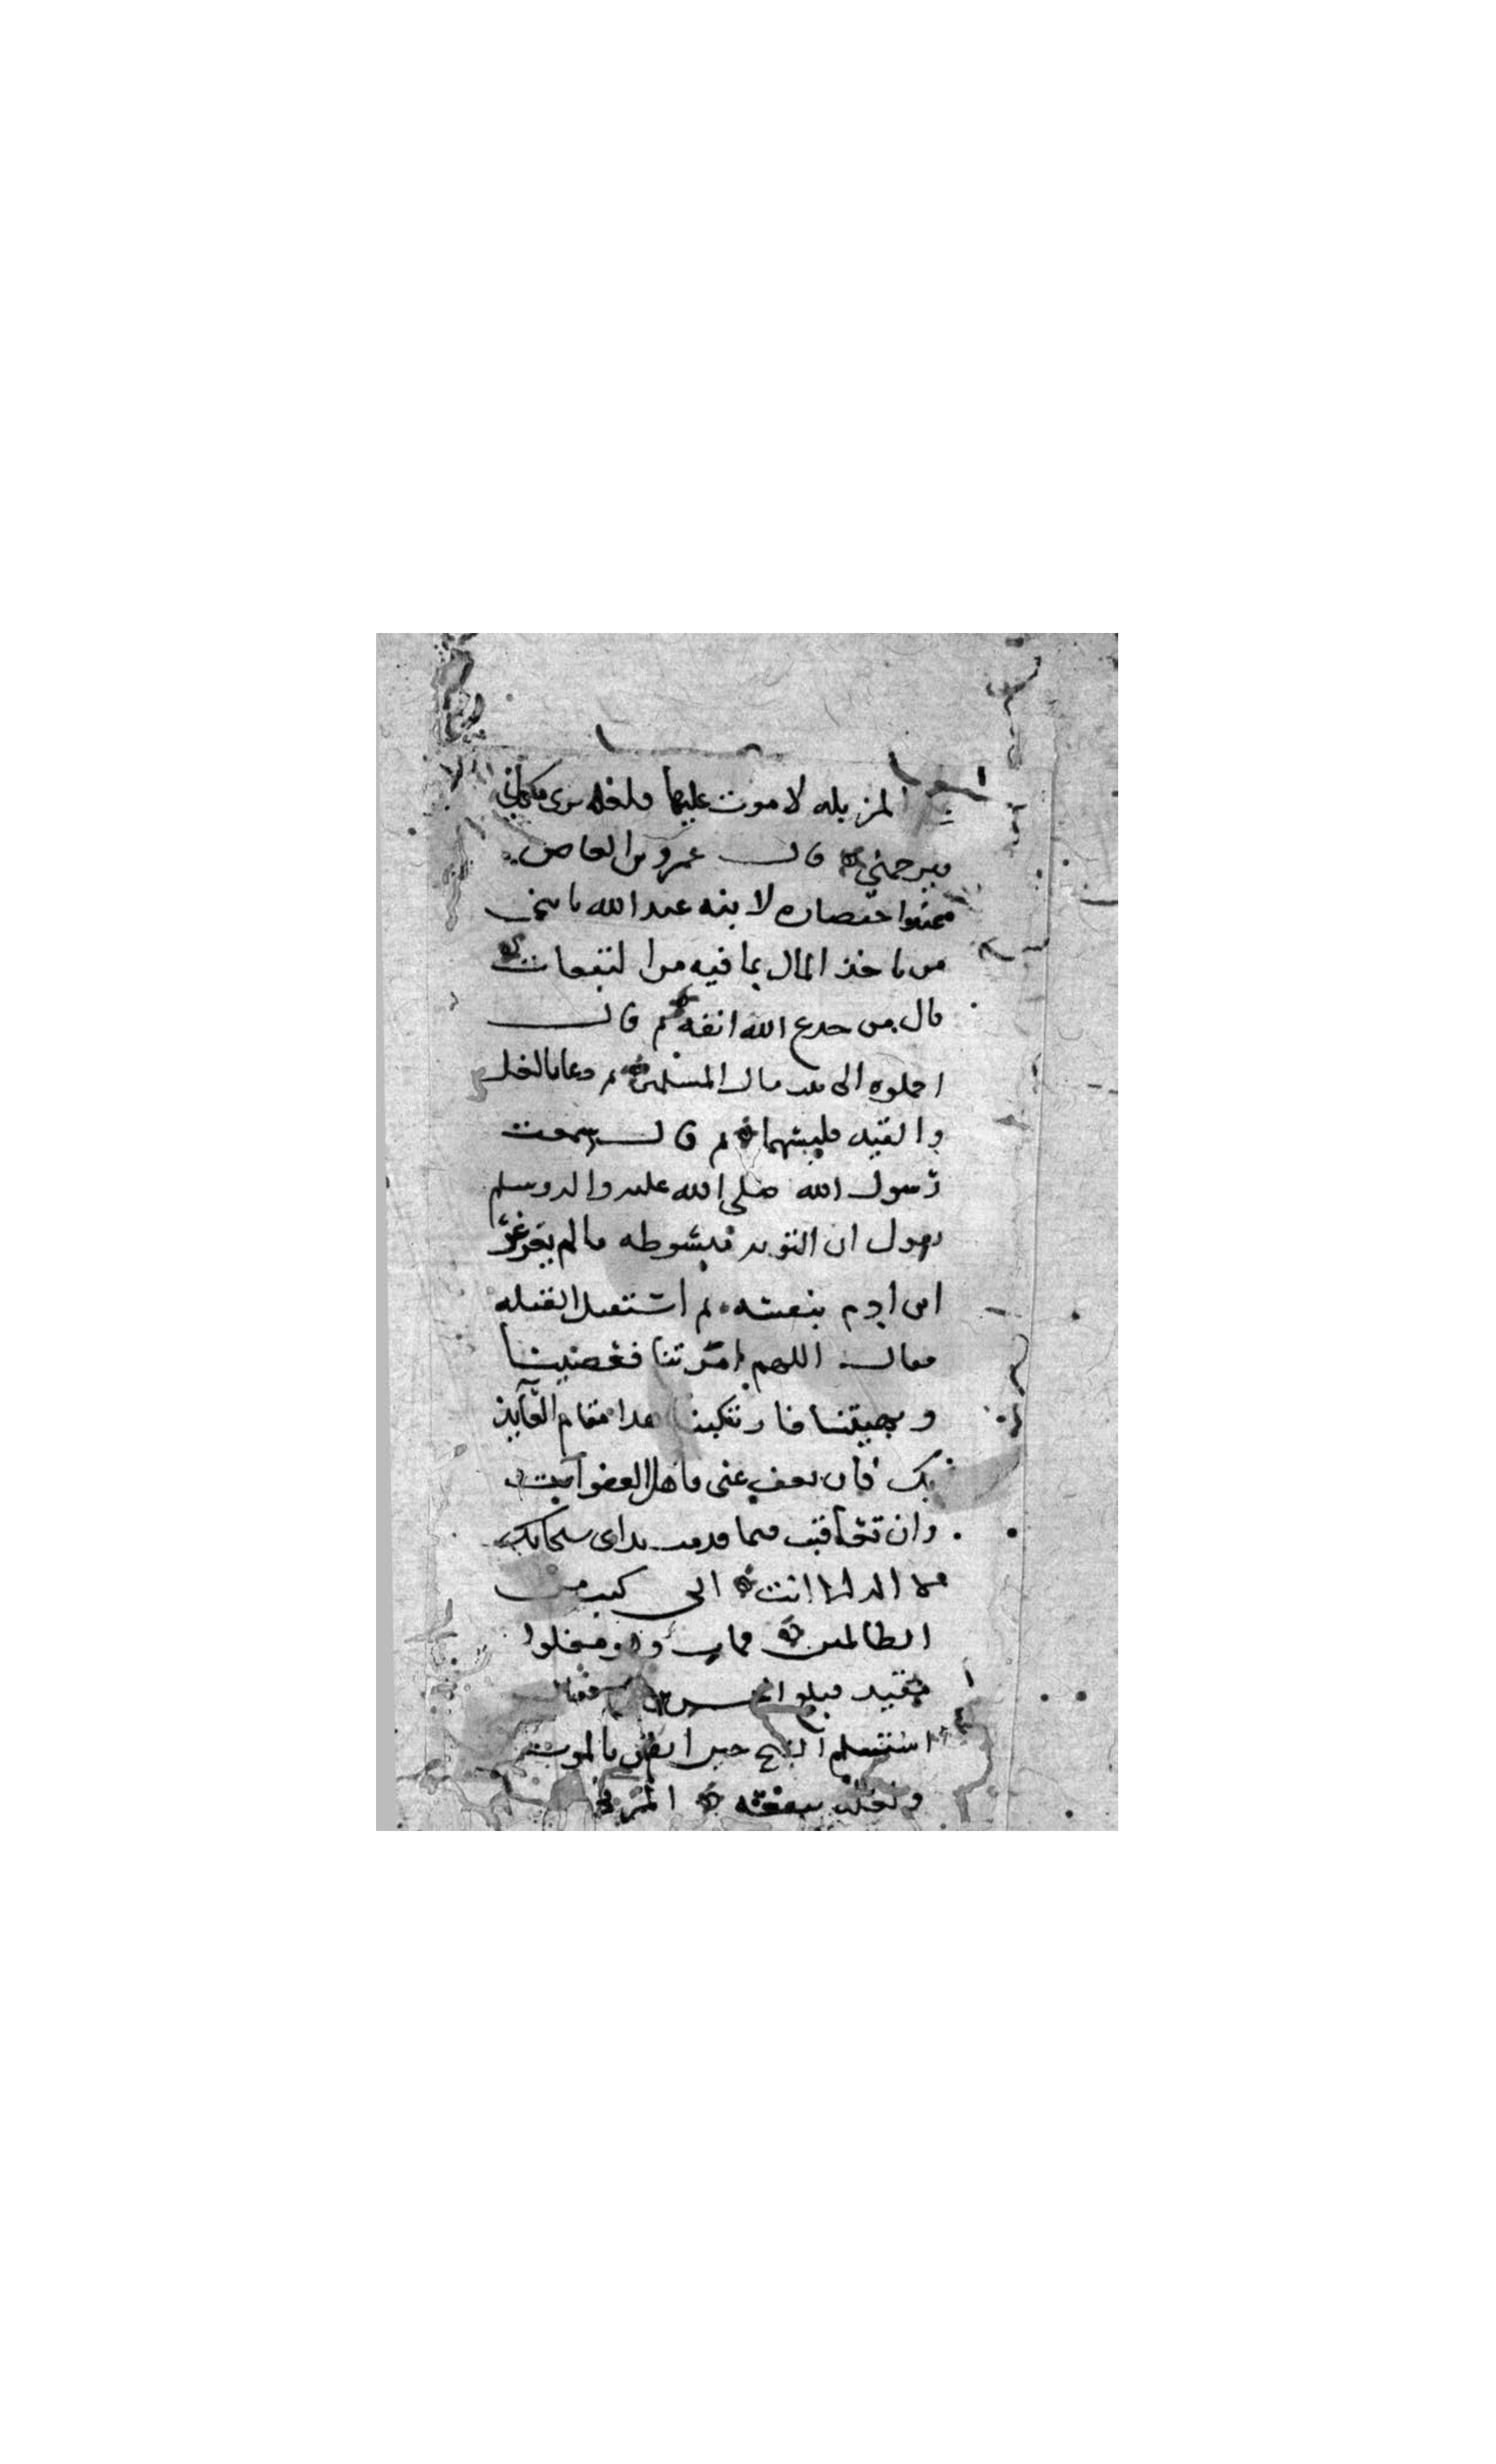 المزبله لاموت عليها فلعله يرى مكاني
فيرحمني قال عمرو بن العاص
عند احتضاره لابنه عبد الله يا بني
من ياخذ المال بما فيه من التبعات
قال من جدع الله انفه ثم قال
احملوه الى بيت مال المسلمين ثم دعا بالغل
والقيد فلبسهما ثم قال سمعت
رسول الله صلى الله عليه واله وسلم
يقول ان التوبه مبسوطه ما لم يغرغر
ابن ادم بنفسه ثم استقبل القبله
فقال اللهم امرتنا فعصينا
ونهيتنا فارتكبنا هذا مقام العايذ
بك فان تعف عني فاهل العفو انت
وان تعاقب فبما قدمت يداي سبحانك
لا اله الا انت اني كنت من
الظالمين فمات وهو مغلول
مقيد فبلغ الحسن فقال
استسلم الشيخ حين ايقن بالموت
ولعله ينفعه